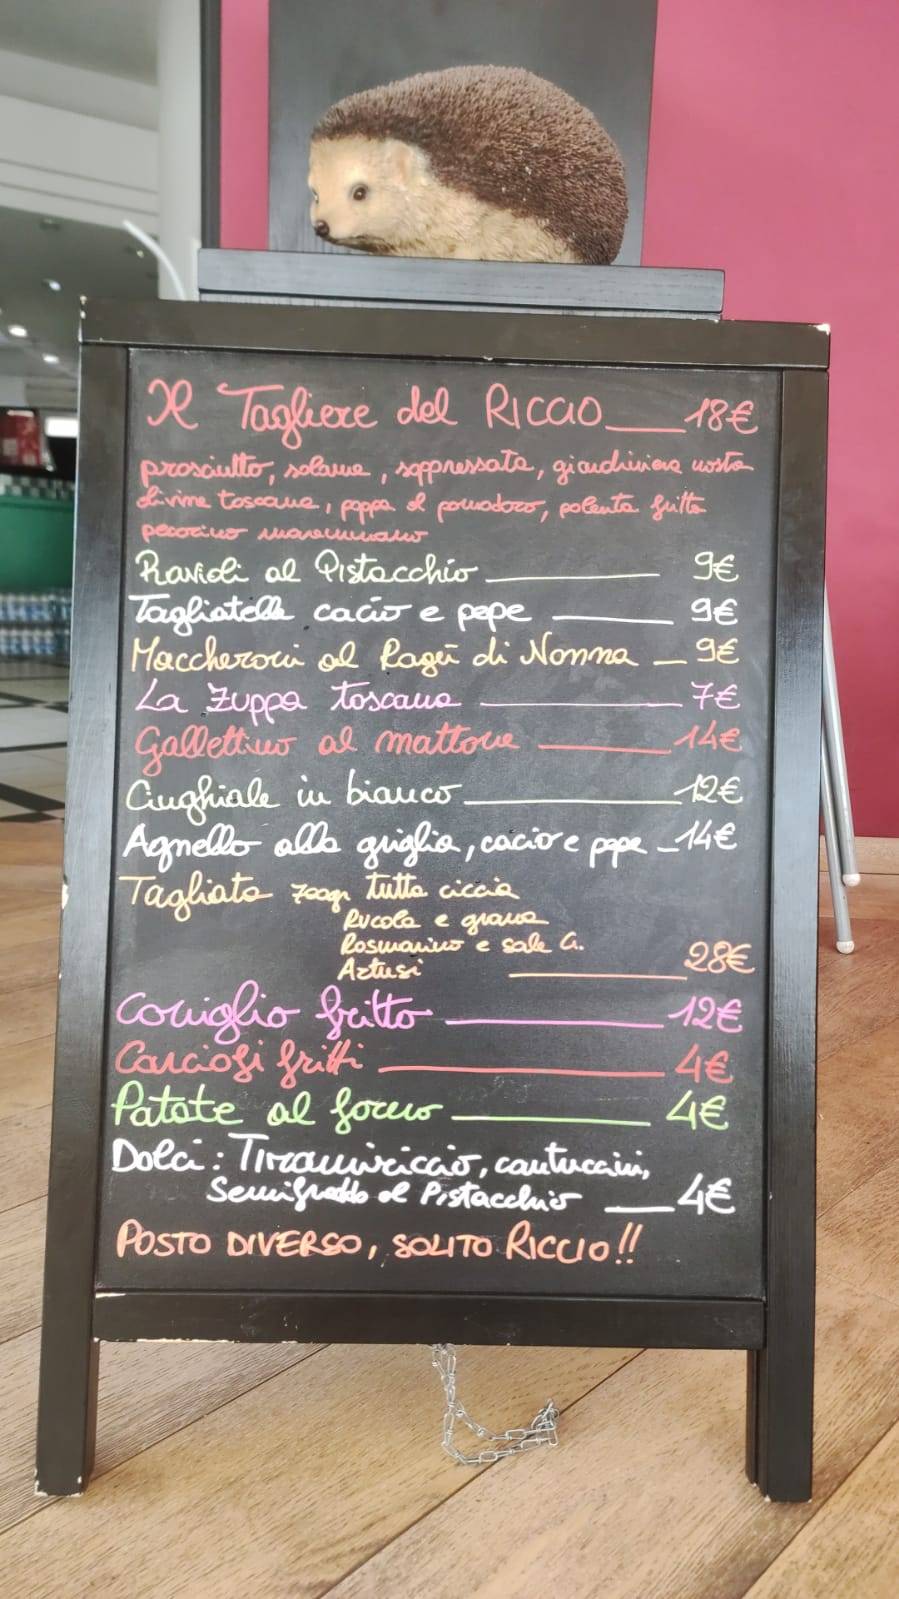 Il Tagliere del RICCIO 18€
prosciutto, salame, soppressata, giardiniera nostra
divine toscane, pappa al pomodoro, polenta fritta
pecorino maremmano
Ravioli al Pistacchio 9€
Tagliatelle cacio e pepe 9€
Maccheroni al Ragù di Nonna 9€
La Zuppa toscana 7€
Gallettino al mattone 14€
Cinghiale in bianco 12€
Agnello alla griglia, cacio e pepe 14€
Tagliata 700gr tutta ciccia
Rucola e grana
Rosmarino e sale G.
Artusi 28€
Coniglio fritto 12€
Carciofi fritti 4€
Patate al forno 4€
Dolci: Tiramiriccio, cantuccini,
Semifreddo al Pistacchio 4€
POSTO DIVERSO, SOLITO RICCIO!!